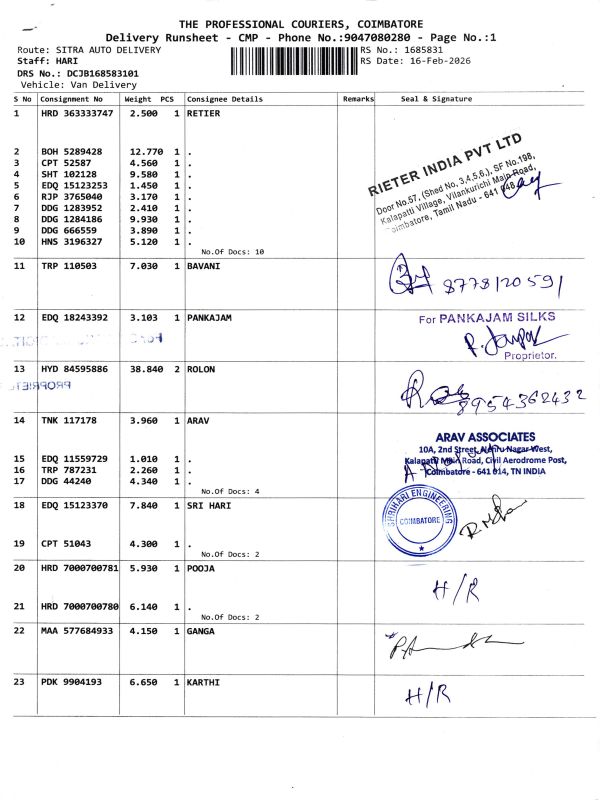 THE PROFESSIONAL COURIERS, COIMBATORE
Delivery Runsheet - CMP - Phone No.:9047080280 - Page No.:1
Route: SITRA AUTO DELIVERY RS No.: 1685831
Staff: HARI RS Date: 16-Feb-2026
DRS No.: DCJB168583101
Vehicle: Van Delivery
S No Consignment No Weight PCS Consignee Details Remarks Seal & Signature
1 HRD 363333747 2.500 1 RETIER
RIETER INDIA PVT LTD
Door No.57, (Shed No. 3,4,5,6,), SF No.198,
Kalapatti Village, Vilankurichi Main Road,
Coimbatore, Tamil Nadu - 641 048.
2 BOH 5289428 12.770 1 .
3 CPT 52587 4.560 1 .
4 SHT 102128 9.580 1 .
5 EDQ 15123253 1.450 1 .
6 RJP 3765040 3.170 1 .
7 DDG 1283952 2.410 1 .
8 DDG 1284186 9.930 1 .
9 DDG 666559 3.890 1 .
10 HNS 3196327 5.120 1 .
No.Of Docs: 10
11 TRP 110503 7.030 1 BAVANI
8778120591
12 EDQ 18243392 3.103 1 PANKAJAM
For PANKAJAM SILKS
Proprietor.
13 HYD 84595886 38.840 2 ROLON
8954362432
14 TNK 117178 3.960 1 ARAV
ARAV ASSOCIATES
10A, 2nd Street, Nehru Nagar West,
Kalapatti Main Road, Civil Aerodrome Post,
Coimbatore - 641 014, TN INDIA
15 EDQ 11559729 1.010 1 .
16 TRP 787231 2.260 1 .
17 DDG 44240 4.340 1 .
No.Of Docs: 4
18 EDQ 15123370 7.840 1 SRI HARI
SHRIHARI ENGINEERING
COIMBATORE
19 CPT 51043 4.300 1 .
No.Of Docs: 2
20 HRD 7000700781 5.930 1 POOJA
H/R
21 HRD 7000700780 6.140 1 .
No.Of Docs: 2
22 MAA 577684933 4.150 1 GANGA
23 PDK 9904193 6.650 1 KARTHI
H/R